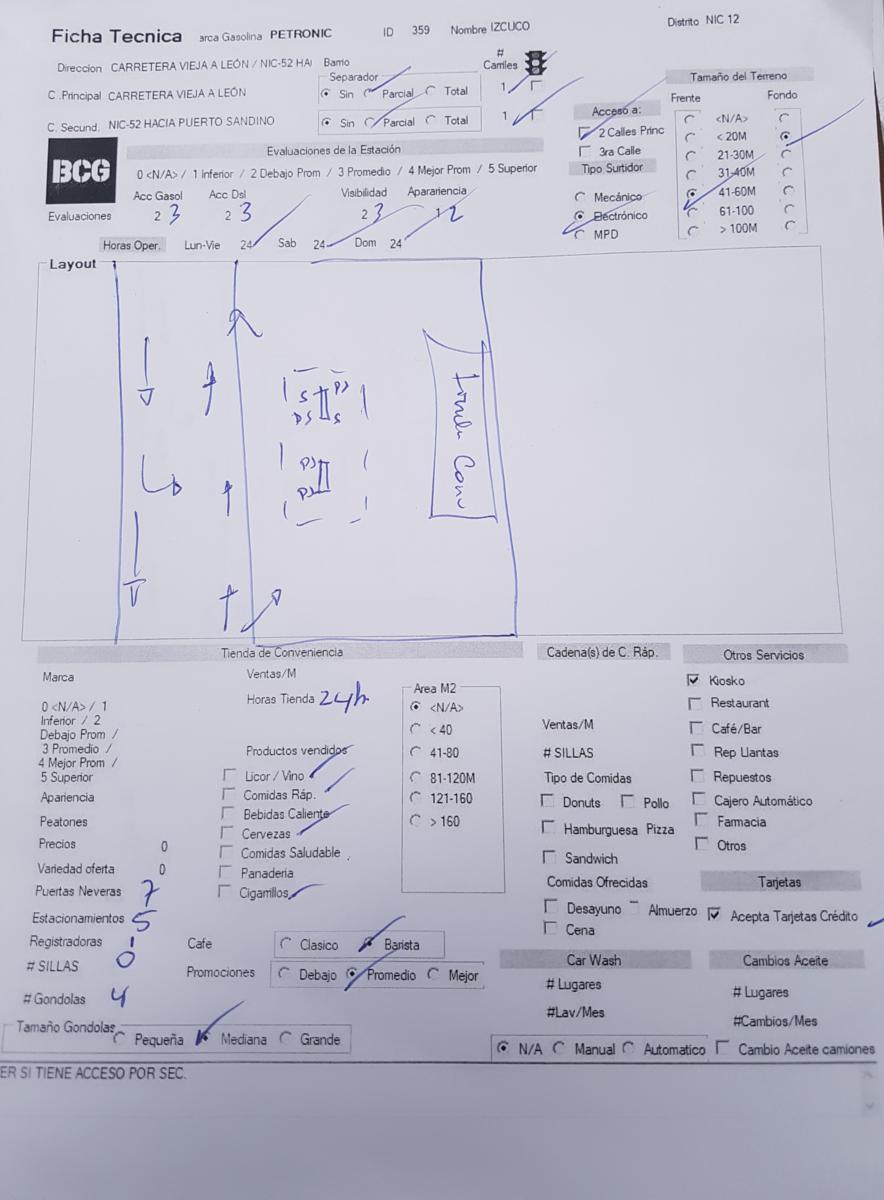 Ficha Tecnica arca Gasolina PETRONIC ID 359 Nombre IZCUCO Distrito NIC 12
Direccion CARRETERA VIEJA A LEÓN / NIC-52 HA Barrio # Carriles
Separador Tamaño del Terreno
C .Principal CARRETERA VIEJA A LEÓN Sin Parcial Total 1 Frente Fondo
C. Secund. NIC-52 HACIA PUERTO SANDINO Sin Parcial Total 1
Acceso a:
2 Calles Princ
3ra Calle
Tipo Surtidor
Mecánico
Electrónico
MPD
<N/A>
< 20M
21-30M
31-40M
41-60M
61-100
> 100M
BCG
Evaluaciones de la Estación
0 <N/A> / 1 Inferior / 2 Debajo Prom / 3 Promedio / 4 Mejor Prom / 5 Superior
Acc Gasol Acc Dsl Visibilidad Aparariencia
Evaluaciones 2 3 2 3 2 3 1 2
Horas Oper. Lun-Vie 24 Sab 24 Dom 24
Layout
Tienda Conv
Tienda de Conveniencia
Marca
0 <N/A> / 1
Inferior / 2
Debajo Prom /
3 Promedio /
4 Mejor Prom /
5 Superior
Apariencia
Peatones
Precios 0
Variedad oferta 0
Puertas Neveras 7
Estacionamientos 5
Registradoras 1
# SILLAS 0
# Gondolas 4
Tamaño Gondolas Pequeña Mediana Grande
Ventas/M
Horas Tienda 24h
Productos vendidos
Licor / Vino
Comidas Ráp.
Bebidas Caliente
Cervezas
Comidas Saludable
Panaderia
Cigarrillos
Cafe Clasico Barista
Promociones Debajo Promedio Mejor
Area M2
<N/A>
< 40
41-80
81-120M
121-160
> 160
Cadena(s) de C. Ráp.
Ventas/M
# SILLAS
Tipo de Comidas
Donuts Pollo
Hamburguesa Pizza
Sandwich
Comidas Ofrecidas
Desayuno Almuerzo
Cena
Car Wash
# Lugares
#Lav/Mes
N/A Manual Automatico
Otros Servicios
Kiosko
Restaurant
Café/Bar
Rep Llantas
Repuestos
Cajero Automático
Farmacia
Otros
Tarjetas
Acepta Tarjetas Crédito
Cambios Aceite
# Lugares
#Cambios/Mes
Cambio Aceite camiones
ER SI TIENE ACCESO POR SEC.